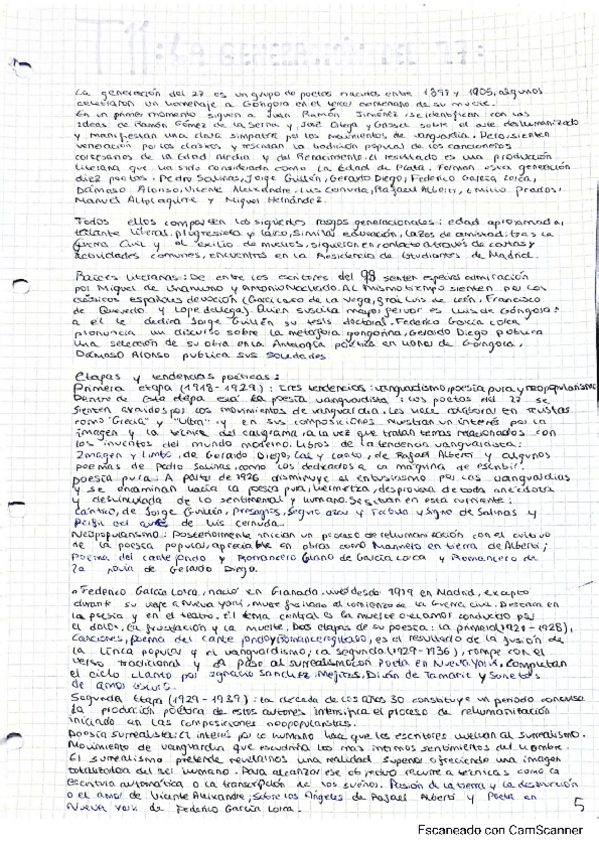 La generación del 27 es un grupo de poetas nacidos entre 1891 y 1905, algunos
celebraron un homenaje a Góngora en el tercer centenario de su muerte.
En un primer momento siguen a Juan Ramón Jiménez, se identifican con las
ideas de Ramón Gómez de la Serna y José Ortega y Gasset sobre el arte deshumanizado
y manifiestan una clara simpatía por los movimientos de vanguardia. Pero sienten
veneración por los clásicos y rescatan la tradición popular de los cancioneros
cortesanos de la Edad Media y del Renacimiento. El resultado es una producción
literaria que ha sido considerada como la Edad de Plata. Forman esta generación
diez poetas: Pedro Salinas, Jorge Guillén, Gerardo Diego, Federico García Lorca,
Dámaso Alonso, Vicente Aleixandre, Luis Cernuda, Rafael Alberti, Emilio Prados,
Manuel Altolaguirre y Miguel Hernández.
Todos ellos comparten los siguientes rasgos generacionales: edad aproximada,
talante liberal, progresista y laico, similar educación, lazos de amistad: tras la
Guerra Civil y el exilio de muchos, siguieron en contacto a través de cartas y
actividades comunes, encuentros en la Residencia de Estudiantes de Madrid.
Raíces literarias: De entre los escritores del 98 sienten especial admiración
por Miguel de Unamuno y Antonio Machado. Al mismo tiempo sienten por los
clásicos españoles devoción (Garcilaso de la Vega, fray Luis de León, Francisco
de Quevedo y Lope de Vega). Quien suscita mayor fervor es Luis de Góngora:
a él le dedica Jorge Guillén su tesis doctoral. Federico García Lorca
pronuncia un discurso sobre la metáfora gongorina, Gerardo Diego publica
una selección de su obra en la Antología poética en honor de Góngora,
Dámaso Alonso publica sus soledades.
Etapas y tendencias poéticas:
Primera etapa (1918-1929): tres tendencias: vanguardismo, poesía pura y neopopularismo
Dentro de esta etapa está la poesía vanguardista: los poetas del 27 se
sienten atraídos por los movimientos de vanguardia. Les hace colaborar en revistas
como "Grecia" y "Ultra" y en sus composiciones muestran un interés por la
imagen y la técnica del caligrama, a la vez que tratan temas relacionados con
los inventos del mundo moderno. Libros de la tendencia vanguardista:
Imagen y limbo, de Gerardo Diego, Cal y canto, de Rafael Alberti y algunos
poemas de Pedro Salinas, como los dedicados a la máquina de escribir.
poesía pura: A partir de 1926 disminuye el entusiasmo por las vanguardias
y se encaminan hacia la poesía pura, hermética, desprovista de toda anécdota
y desvinculada de lo sentimental y humano. Se sitúan en esta corriente:
Cántico, de Jorge Guillén, Presagios, Seguro azar y Fábula y signo de Salinas y
Perfil del aire de Luis Cernuda.
Neopopularismo: Posteriormente inician un proceso de rehumanización con el cultivo
de la poesía popular, apreciable en obras como Marinero en tierra de Alberti;
Poema del cante jondo y Romancero Gitano de García Lorca y Romancero de
la novia de Gerardo Diego.
• Federico García Lorca, nació en Granada, vivió desde 1919 en Madrid, excepto
durante su viaje a Nueva York, muere fusilado al comienzo de la Guerra Civil. Destaca en
la poesía y en el teatro. El tema central es la muerte o el amor conducto por
el dolor, la frustración y la muerte. Dos etapas de su poesía: la primera (1921-1928),
Canciones, Poema del cante jondo y Romancero gitano, es el resultado de la fusión de
la lírica popular y el vanguardismo; la segunda (1929-1936), rompe con el
verso tradicional y da paso al surrealismo con Poeta en Nueva York, completan
el ciclo Llanto por Ignacio Sánchez Mejías, Diván de Tamarit y Sonetos
de amor oscuro.
Segunda Etapa (1929-1939): la década de los años 30 constituye un periodo
la producción poética de estos autores intensifica el proceso de rehumanización
iniciado en las composiciones neopopularistas.
Poesía surrealista: El interés por lo humano hace que los escritores vuelvan al surrealismo.
Movimiento de vanguardia que escudriña los más íntimos sentimientos del hombre.
El surrealismo pretende revelarnos una realidad superior ofreciendo una imagen
totalizadora del ser humano. Para alcanzar ese objetivo recurre a técnicas como la
escritura automática o la transcripción de los sueños. Pasión de la tierra y La destrucción
o el amor de Vicente Aleixandre; Sobre los Ángeles de Rafael Alberti y Poeta en
Nueva York de Federico García Lorca.
5
Escaneado con CamScanner